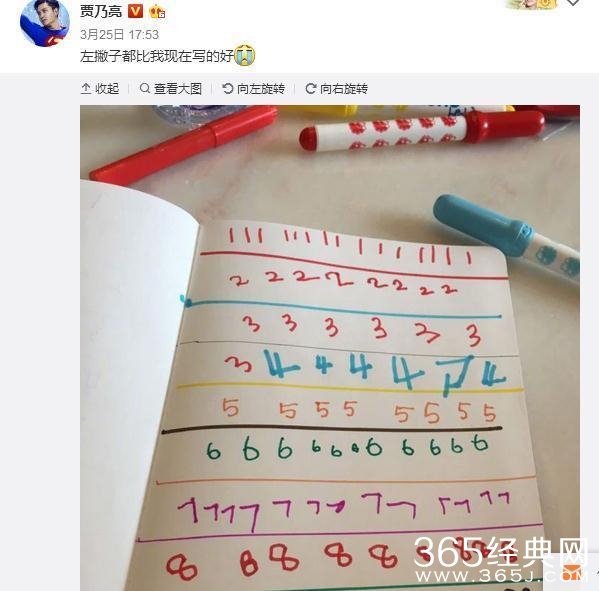 贾乃亮
3月25日 17:53
左撇子都比我现在写的好
收起 查看大图 向左旋转 向右旋转
111 11111 111 11111
2 2 2 2 2 2 2 2
3 3 3 3 3 3
3 4 4 4 4 4
5 5 5 5 5 5 5 5
6 6 6 6 6 6 6 6 6 6
7 7 7 7 7 7 7 7 7 7 7 7 7
8 8 8 8 8 8
365经典网
www.365J.com